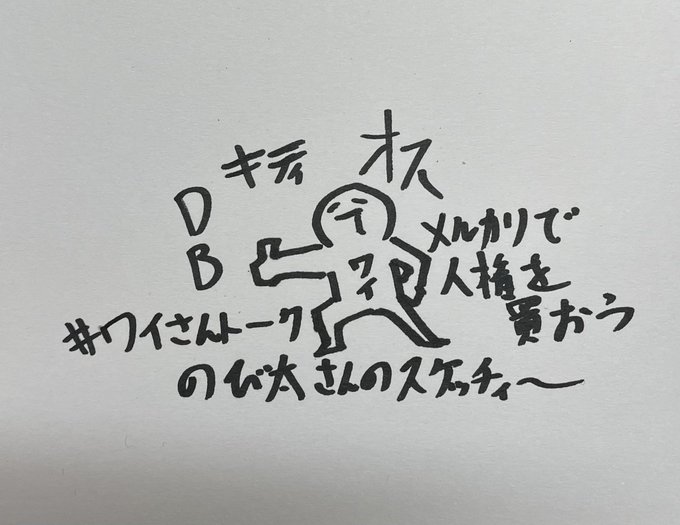 キティ
オス
D
B
ワイ
メルカリで
人権を
買おう
#ワイさんトーク
のび太さんのスケッチィ〜